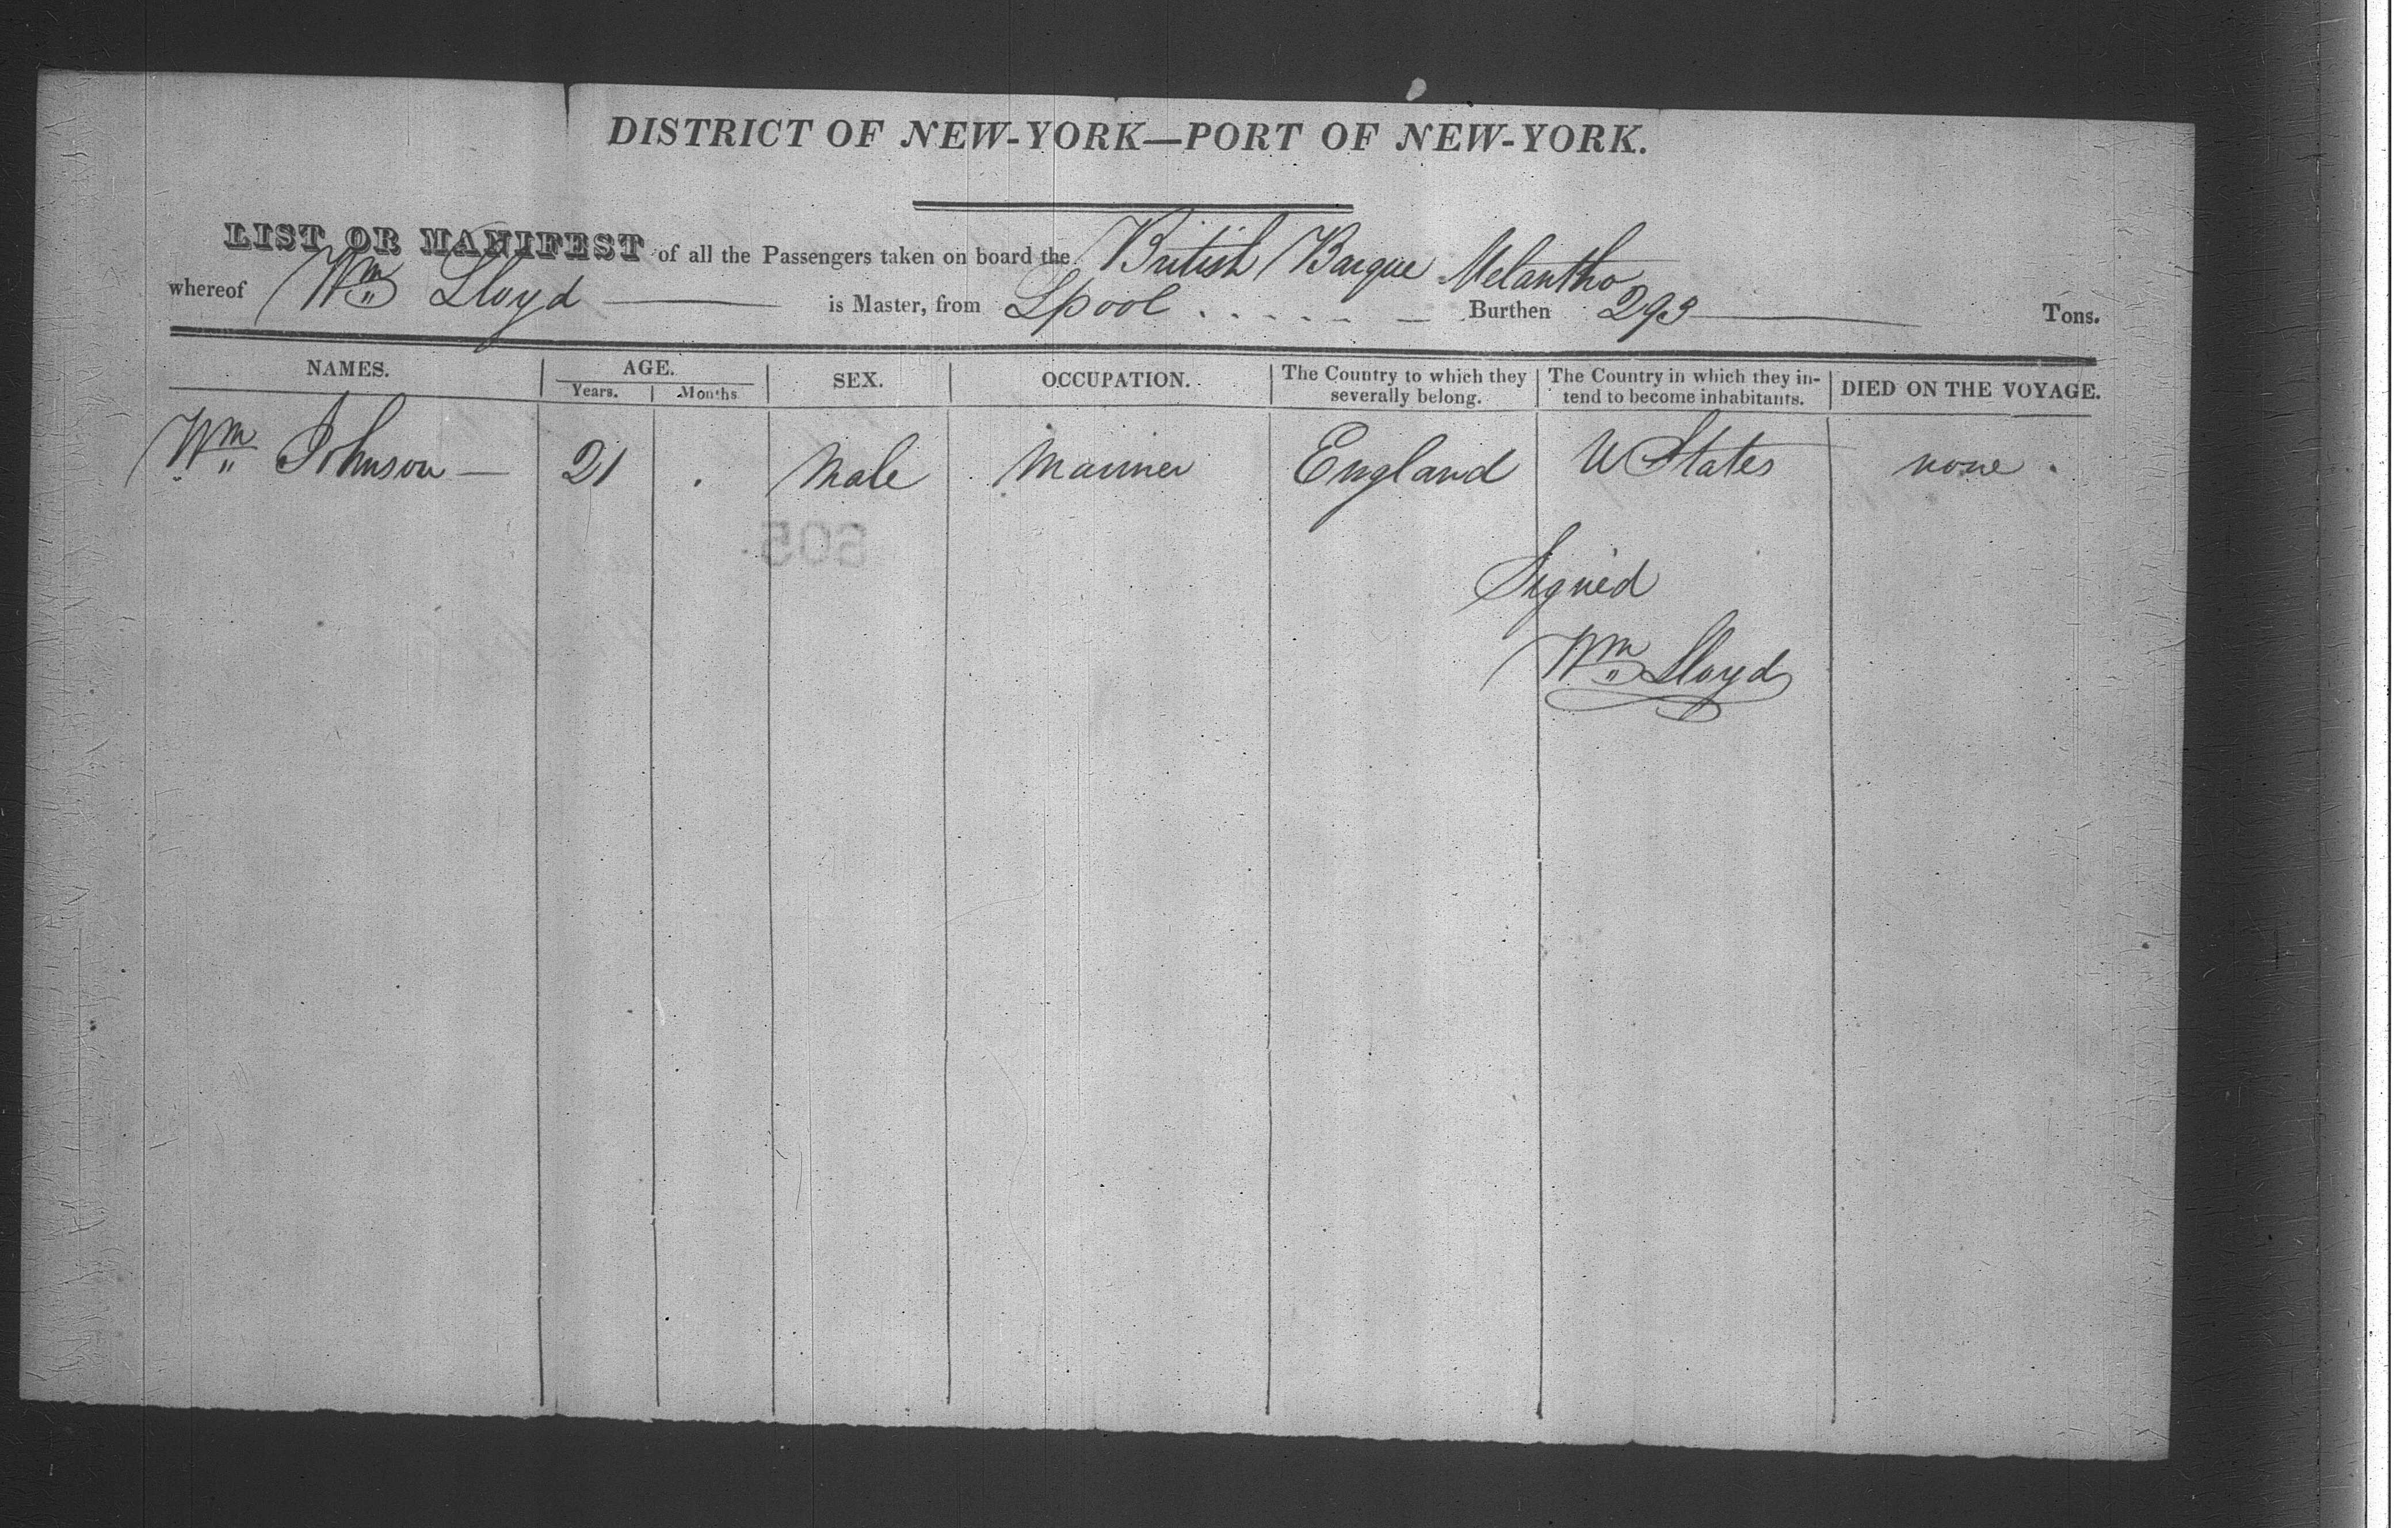 DISTRICT OF NEW-YORK—PORT OF NEW-YORK.
LIST OR MANIFEST of all the Passengers taken on board the British Barque Melantho
whereof Wm Lloyd is Master, from Lpool Burthen 293 Tons.
NAMES. AGE. SEX. OCCUPATION. The Country to which they severally belong. The Country in which they in-tend to become inhabitants. DIED ON THE VOYAGE.
Years. Months
Wm Johnson — 21 . Male Mariner England U States none .
605
Signed
Wm Lloyd